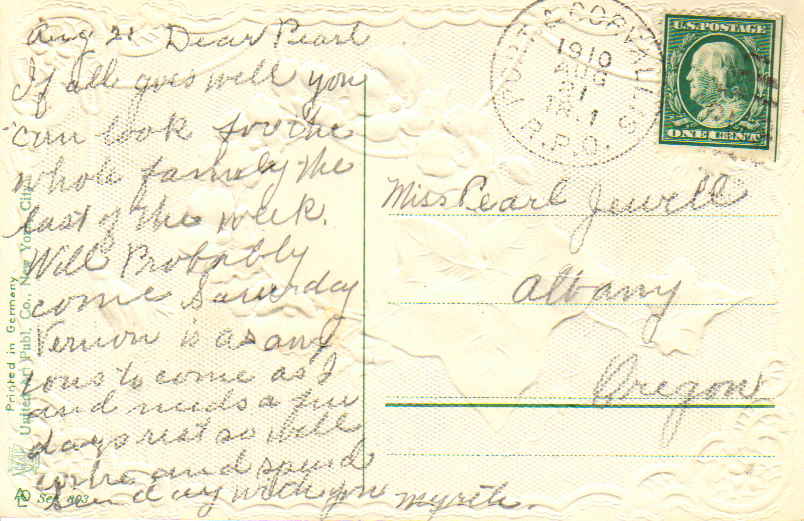 Aug 21 Dear Pearl
If all goes well you
can look for the
whole family the
last of the week.
Will Probably
come Saturday
Vernon is as anx
ious to come as I
and needs a few
days rest so will
come and spend
Sunday with you Myrtle.
PORT. & CORVALLIS
1910
AUG
21
TR 1
R.P.O.
U.S. POSTAGE
ONE CENT
Miss Pearl Jewell
Albany
Oregon
Printed in Germany
United Art Publ. Co., New York City
Ser. 603